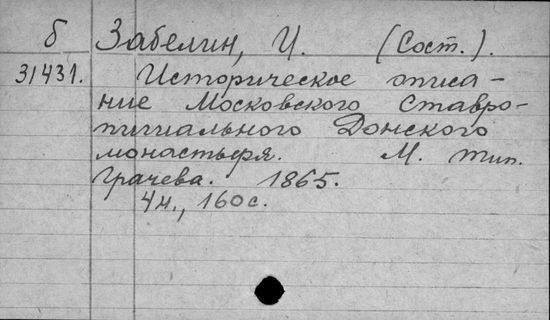 б Забелин, И. (Сост.).
31431. Историческое описа-
ние Московского Ставро-
пигиального Донского
монастыря. М. тип.
Грачева. 1865.
4н., 160с.